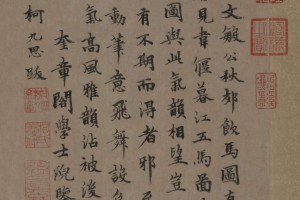 文敏公秋郊飲馬圖真
見韋偃暮江五馬圖
圖與此氣韻相望豈
有不期而得者邪至
動筆意飛舞設色
氣高風雅韻沾被後
奎章閣學士院鑒
柯九思跋